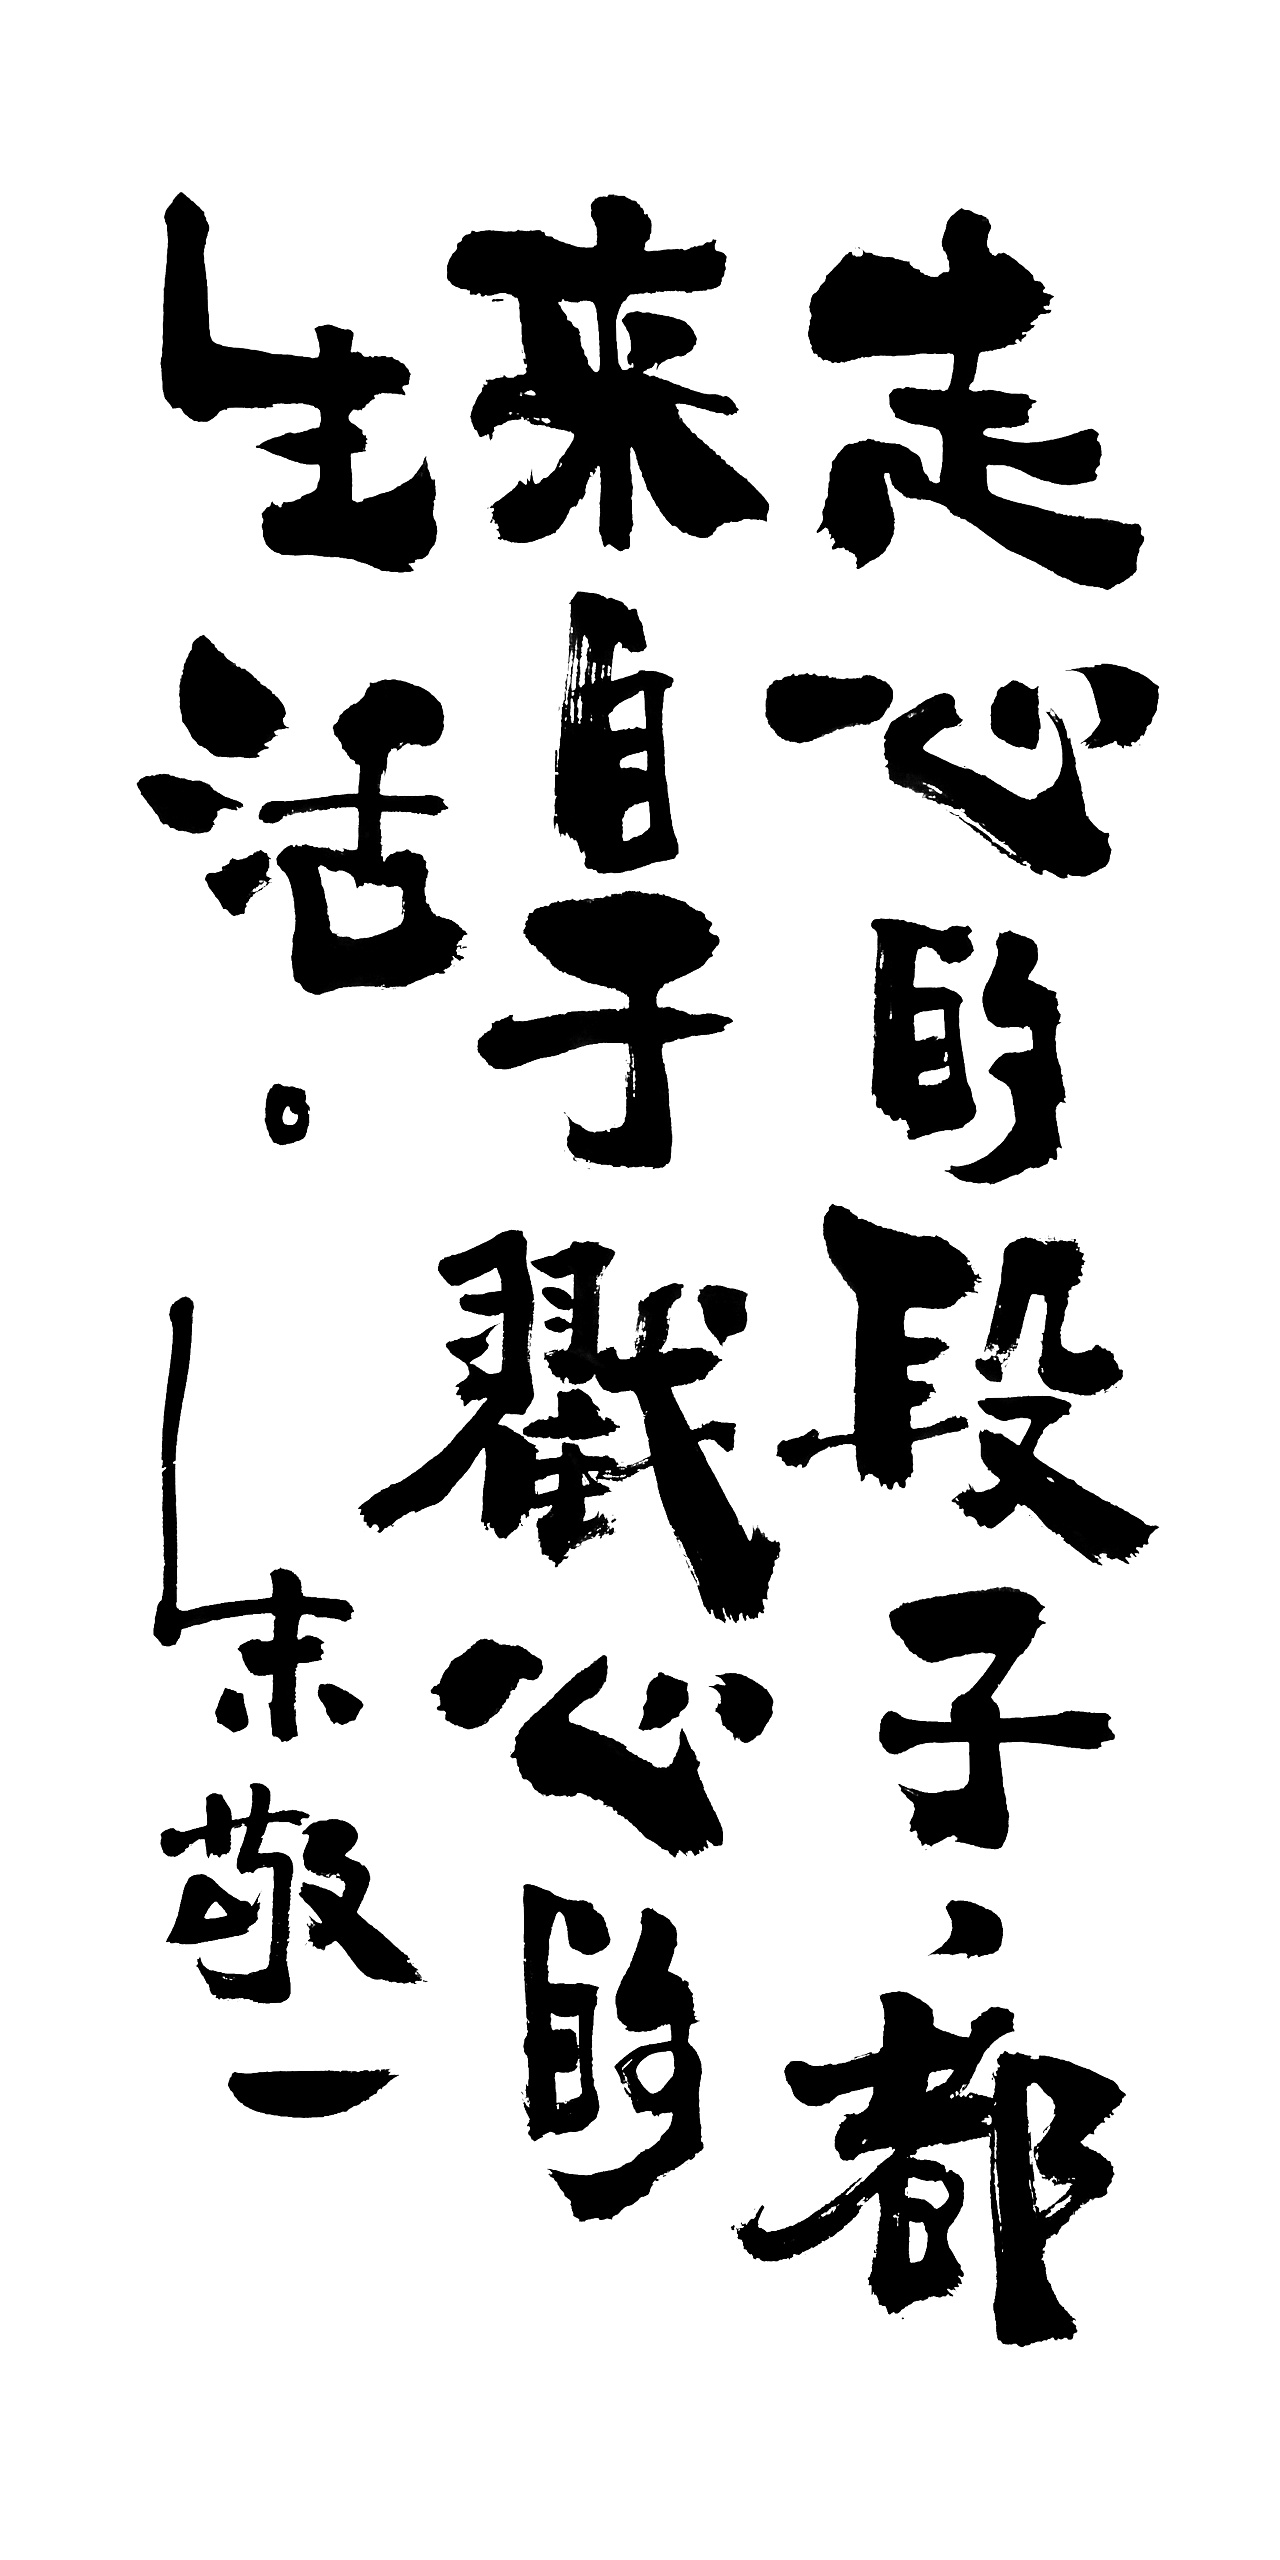 走心的段子、都
来自于戳心的
生活。朱敬一